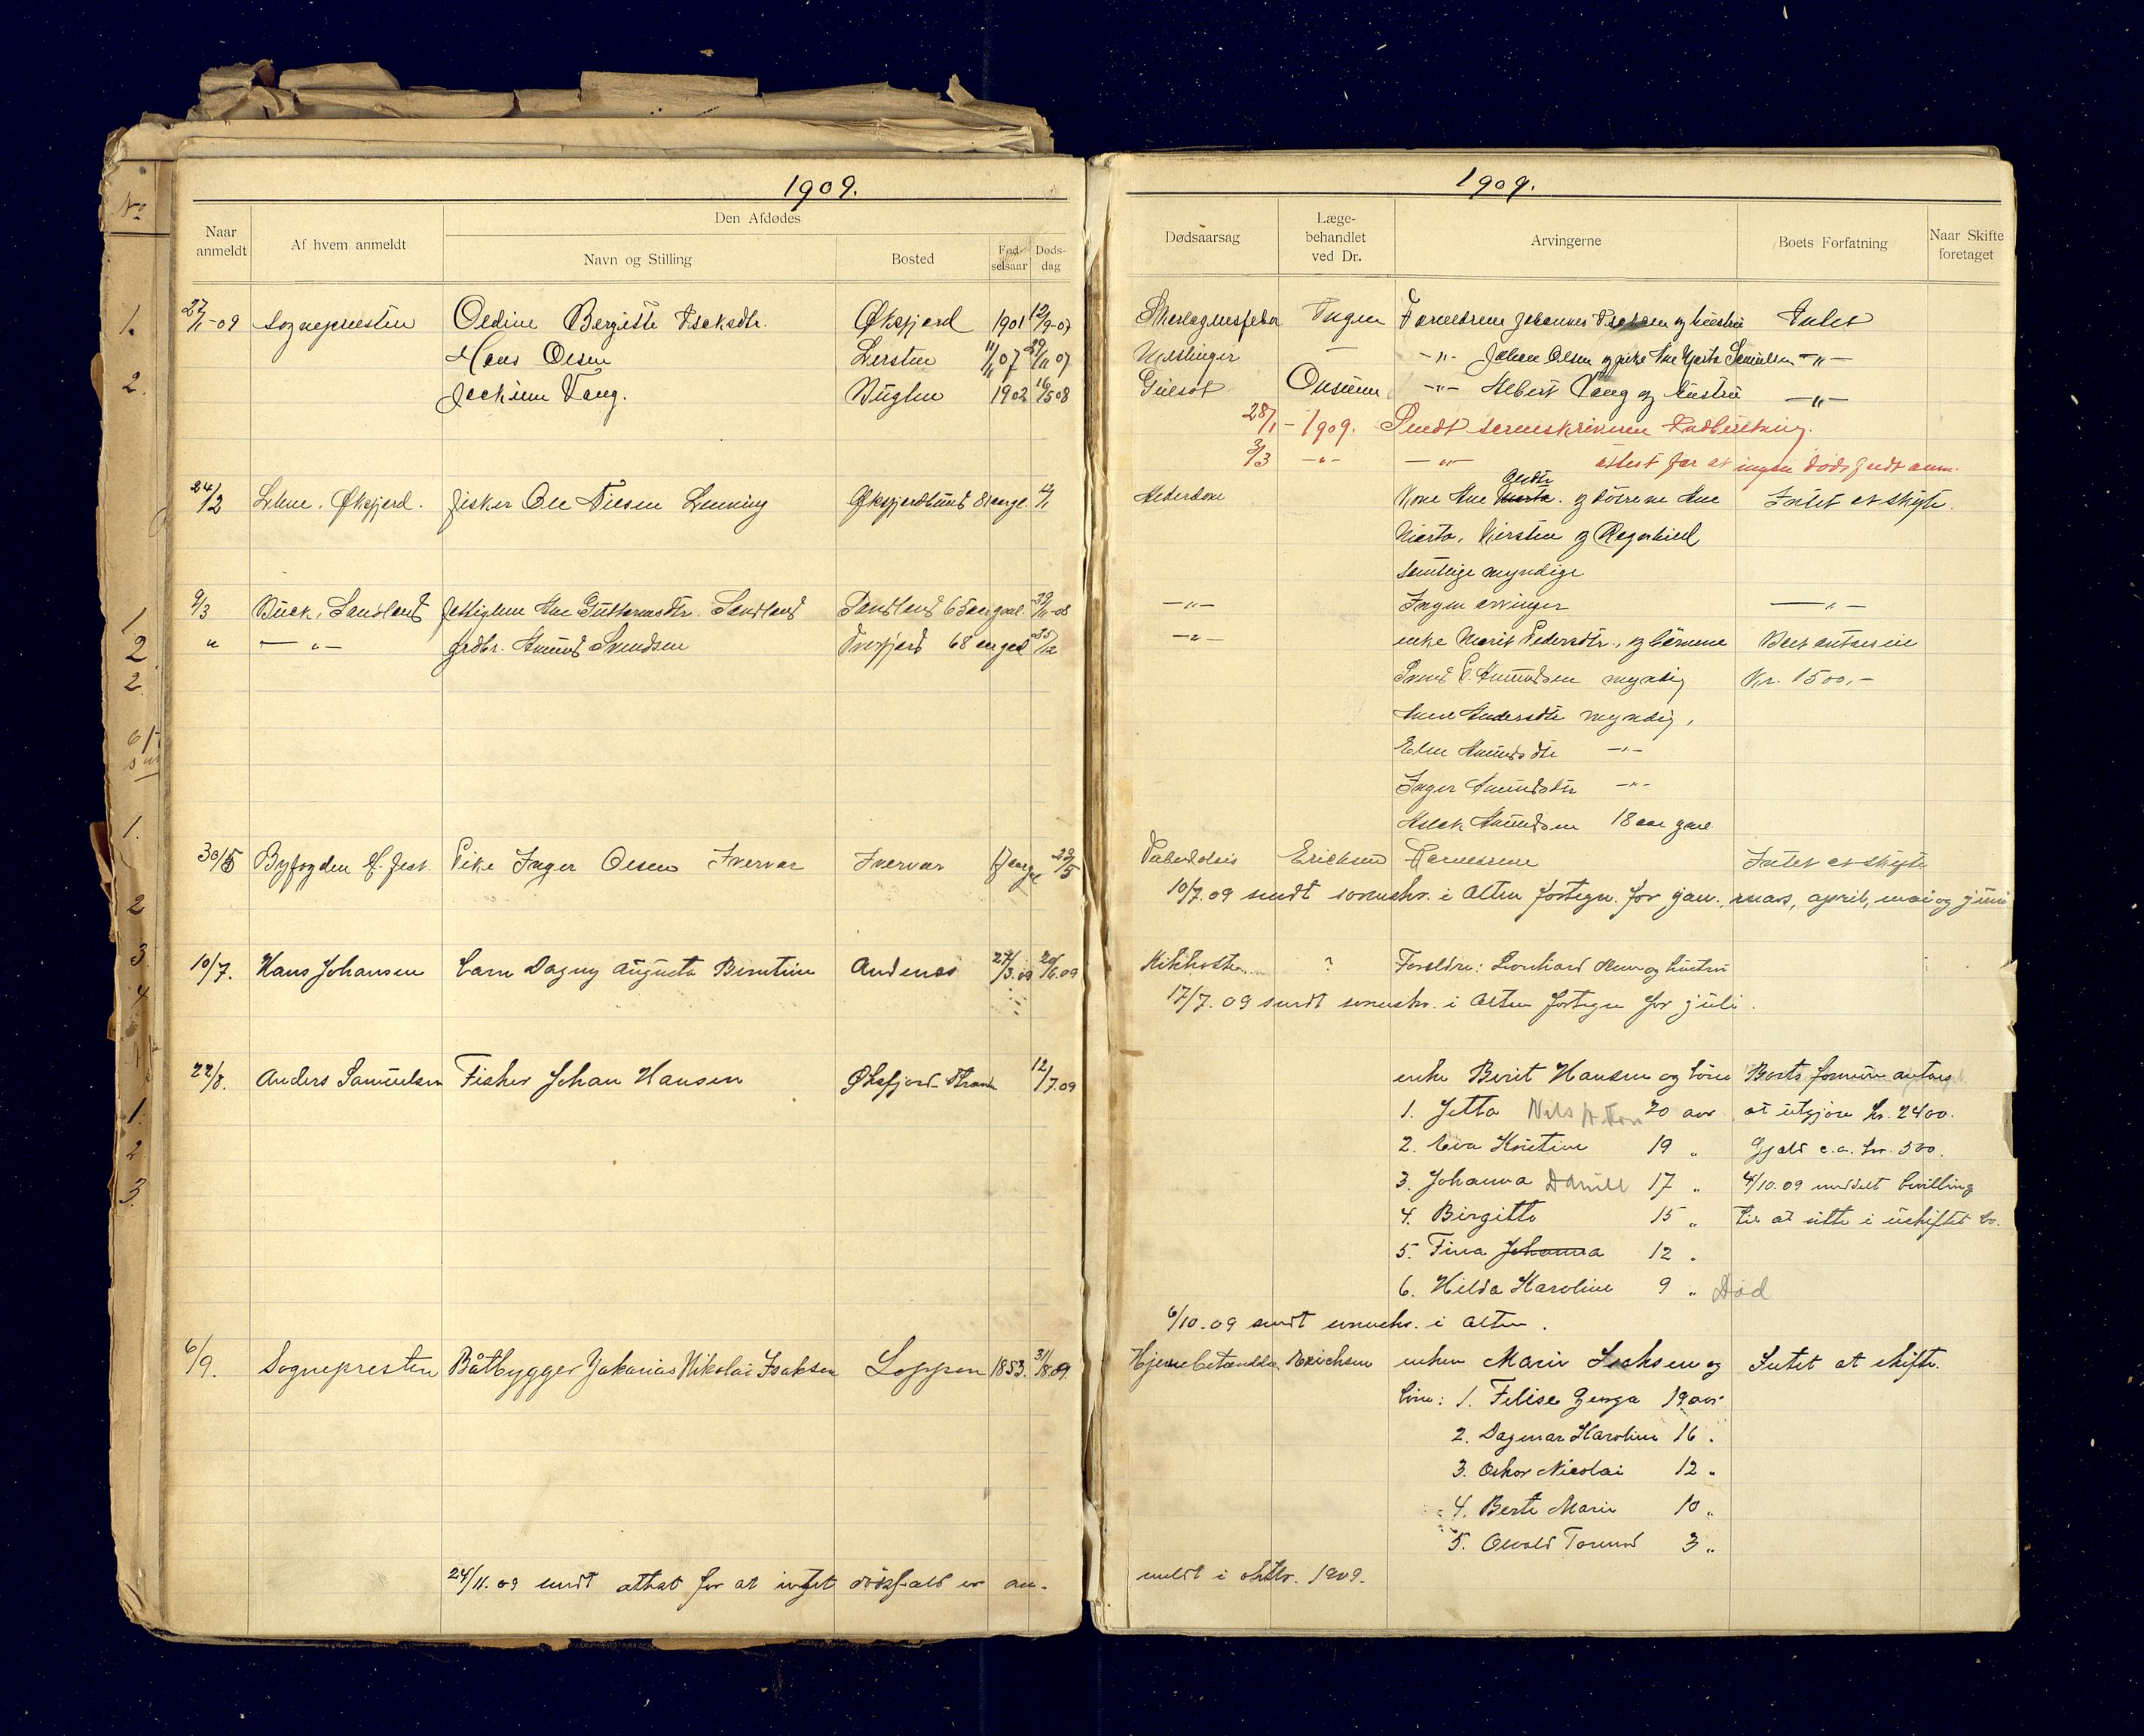 1909.
Naar anmeldt
Af hvem anmeldt
Den Afdødes
Navn og Stilling
Bosted
Fødselsaar
Dødsdag
27/1-09 Sognepresten Oldine Bergitte Isaksdtr. Øksfjord 1901 12/9-07
Hans Olsen Lersten 11/11 07 29/11 07
Jockum Vang. 1902 16/5 08
24/2 Øksfjord. fisker Ole Nilsen Øksfjordbund 81 aar g.
9/3 Buck, Sandland Ane Guttormsdtr. Sandland Sandland 65 aar gml. 30/11-08
" —"— grdbr. Amund Svendsen 68 aar gml
30/5 Byfogden i H.fest. Pike Inger Olsen Ivervær Ivervær 29/5
10/7. Hans Johansen barn Dagny Augusta Berntine Andenes 27/3.09 20/6.09
22/8. Anders Samuelsen Fisker Johan Hansen Øksfjord Strand 12/7.09
6/9. Sognepresten Båtbygger Zakarias Nikolai Isaksen Loppen 1853. 31/8 09.
24/11.09 sendt attest for at intet dødsfald er an-
No
1.
2.
1
2
2.
1.
2
3.
4
1.
2
3.
1909.
Dødsaarsag
Læge-
behandlet
ved Dr.
Arvingerne
Boets Forfatning
Naar Skifte
foretaget
Skarlagensfeber Ingen Forældrene Johannes Isaksen og hustru Intet
Meslinger — —"— Johan Olsen og pike Ane Marta Samuelsen —"—
Gulsot Ousum —"— Albert Vang og hustru —"—
28/1 - 1909. Sendt sorenskriveren Indberetning.
3/3 —"— —"— attest for at ingen dødsf. anm.
Alderdom Kone Ane Marta. og døtrene Ane Intet at skifte.
Marta, Kirsten og Ragnhild
samtlige myndige
—"— Ingen arvinger —"—
—"— enke Marit Pedersdtr., og børnene Boet antas en
Svend E. Amundsen myndig Kr. 1500,-
Ane Andersdtr myndig,
Elen Amundsdtr —"—
Inger Amundsdtr —"—
Aslak Amundsen 18 aar gml
Tuberkulosis Erichsen Forældrene Intet at skifte
10/7.09 sendt sorenskr. i Alten fortegn. for jan., mars, april, mai og juni
Kikhoste ? Foreldre: Leonhard Olsen og hustru
17/7.09 sendt sorenskr. i Alten fortegn for juli.
enke Berit Hansen og børn Boets formue antages
1. Jetta Nils 20 aar at utgjøre kr. 2400.
2. Eva Kristine 19 " Gjeld c.a. kr. 500.
3. Johanna Daniel 17 " 4/10.09 meddelt bevilling
4. Birgitte 15 " til at sitte i uskiftet bo.
5. Tina Johanna 12 "
6. Hilda Karoline 9 " Død
6/10.09 sendt sorenskr. i Alten.
Hjernebetændelse Erichsen enken Marie Isaksen og Intet at skifte.
børn: 1. Felise Georga 19 aar
2. Dagmar Karoline 16 "
3. Oskar Nicolai 12 "
4. Berte Marie 10 "
5. Osvald Tormod 3 "
meldt i oktbr. 1909.